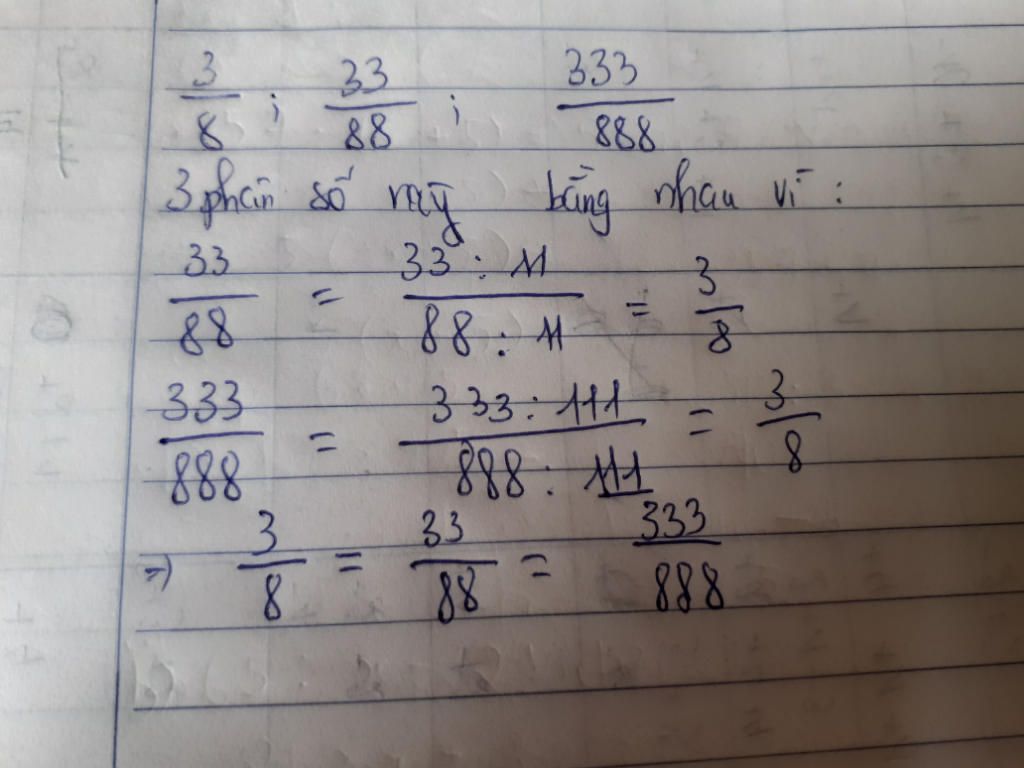 3/8 ; 33/88 ; 333/888
3 phân số này bằng nhau vì :
33/88 = 33 : 11/88 : 11 = 3/8
333/888 = 333 : 111/888 : 111 = 3/8
=> 3/8 = 33/88 = 333/888